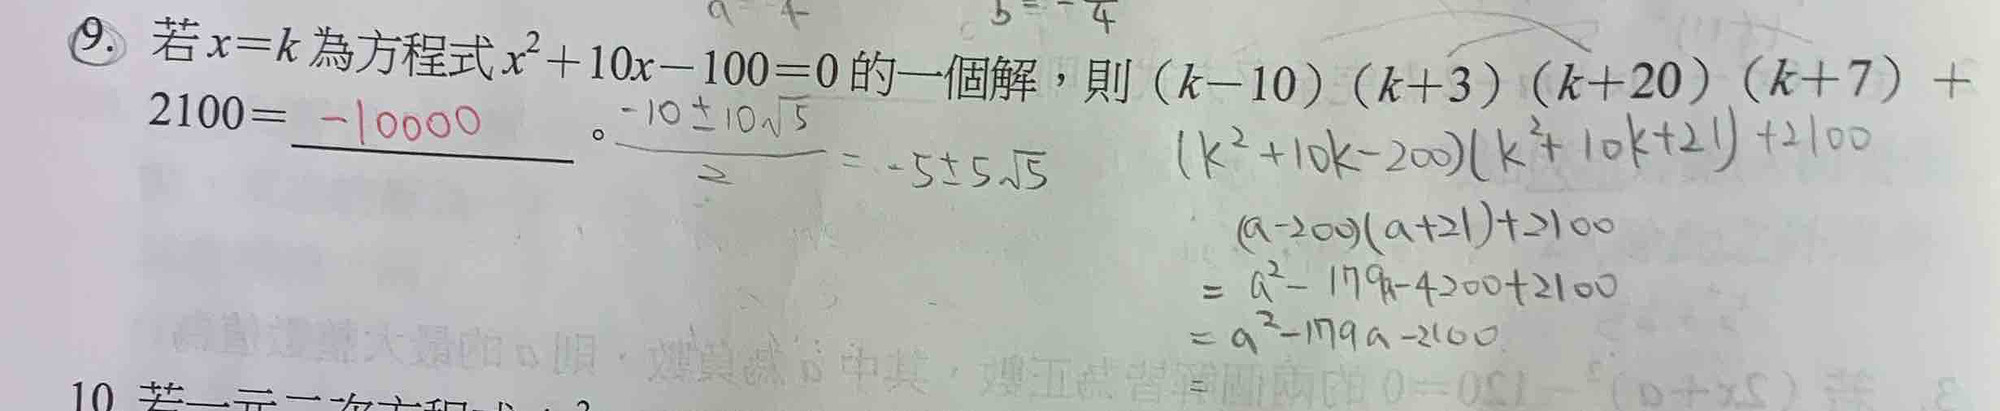 a 4 b = - 4
9. 若x=k為方程式x²+10x-100=0的一個解,則(k-10)(k+3)(k+20)(k+7)+
2100= -10000 。
-10±10√5 / 2 = -5±5√5
(k²+10k-200)(k²+10k+21)+2100
(a-200)(a+21)+2100
= a²-179a-4200+2100
= a²-179a-2100
=
10 若一元二次方程式